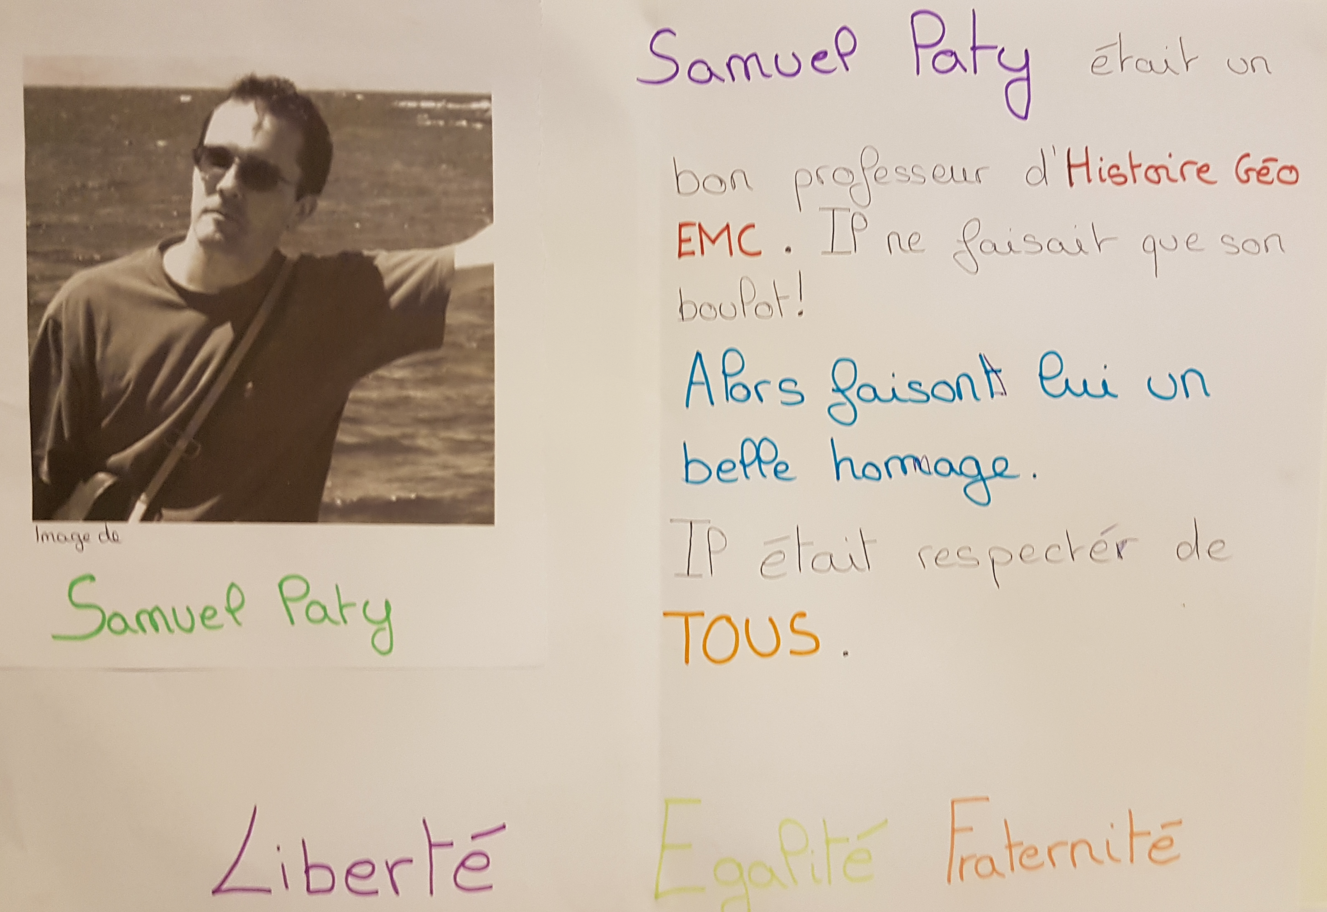 Image de
Samuel Paty
Samuel Paty était un
bon professeur d'Histoire Géo
EMC. Il ne faisait que son
boulot!
Alors faisont lui un
belle hommage.
Il était respectér de
TOUS.
Liberté Egalité Fraternité